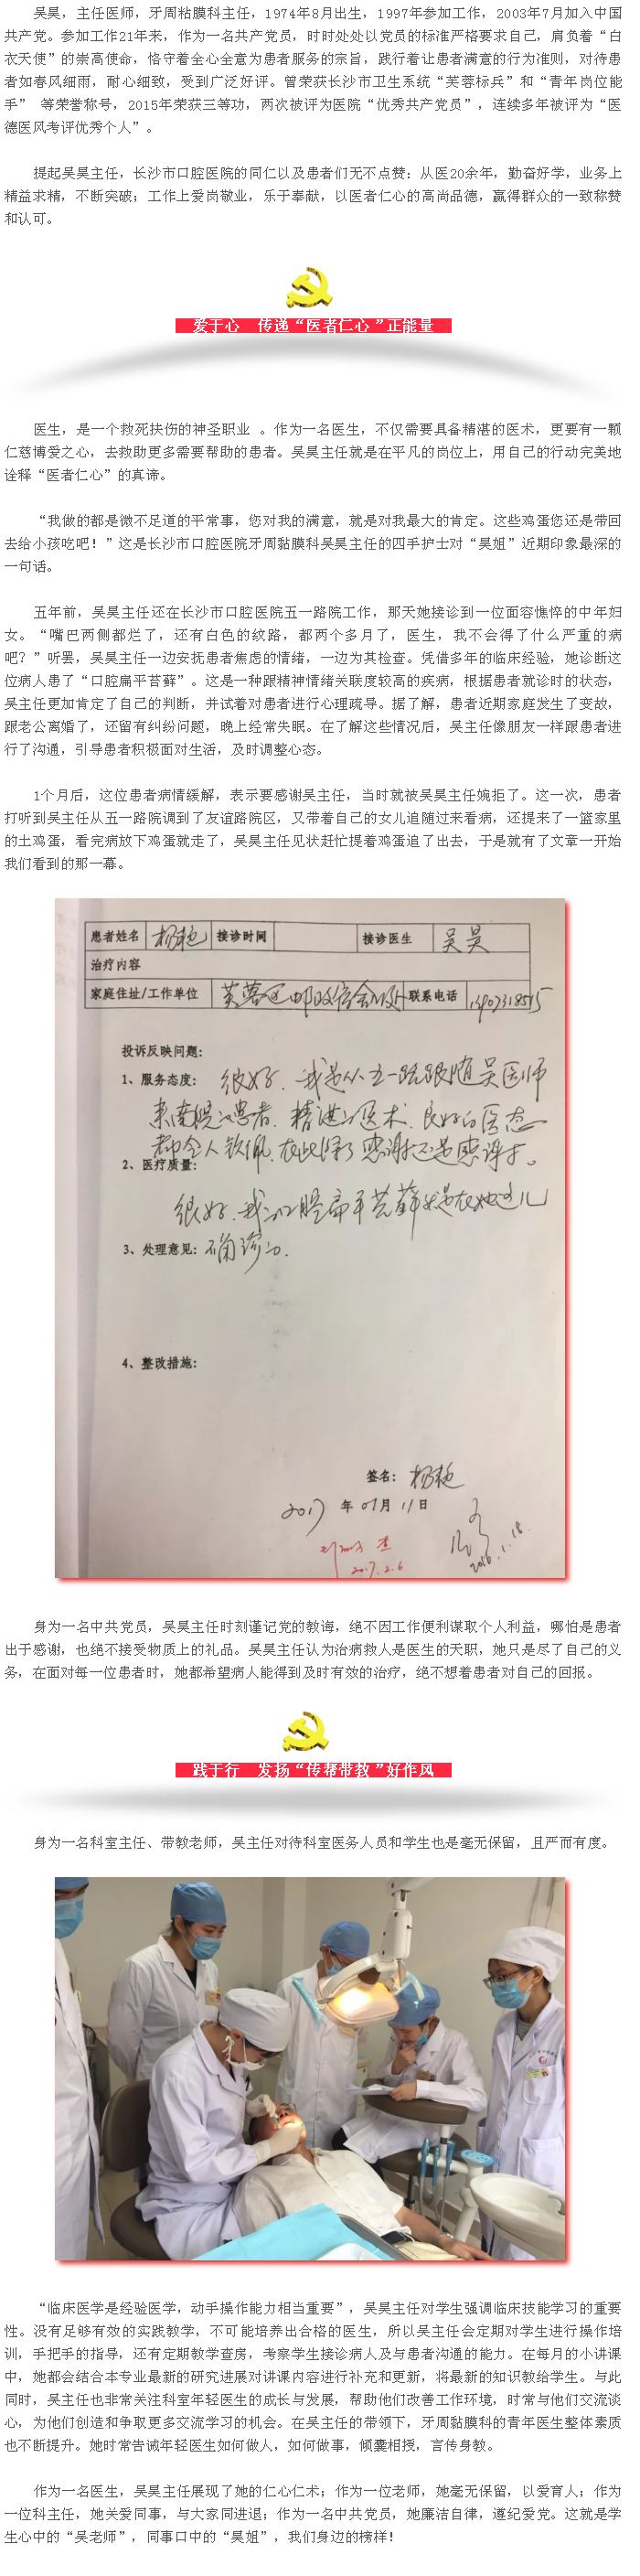 吴昊，主任医师，牙周粘膜科主任，1974年8月出生，1997年参加工作，2003年7月加入中国
共产党。参加工作21年来，作为一名共产党员，时时处处以党员的标准严格要求自己，肩负着“白
衣天使”的崇高使命，恪守着全心全意为患者服务的宗旨，践行着让患者满意的行为准则，对待患
者如春风细雨，耐心细致，受到广泛好评。曾荣获长沙市卫生系统“芙蓉标兵”和“青年岗位能
手” 等荣誉称号，2015年荣获三等功，两次被评为医院“优秀共产党员”，连续多年被评为“医
德医风考评优秀个人”。
提起吴昊主任，长沙市口腔医院的同仁以及患者们无不点赞：从医20余年，勤奋好学，业务上
精益求精，不断突破；工作上爱岗敬业，乐于奉献，以医者仁心的高尚品德，赢得群众的一致称赞
和认可。
爱于心 传递“医者仁心”正能量
医生，是一个救死扶伤的神圣职业 。作为一名医生，不仅需要具备精湛的医术，更要有一颗
仁慈博爱之心，去救助更多需要帮助的患者。吴昊主任就是在平凡的岗位上，用自己的行动完美地
诠释“医者仁心”的真谛。
“我做的都是微不足道的平常事，您对我的满意，就是对我最大的肯定。这些鸡蛋您还是带回
去给小孩吃吧！”这是长沙市口腔医院牙周黏膜科吴昊主任的四手护士对“昊姐”近期印象最深的
一句话。
五年前，吴昊主任还在长沙市口腔医院五一路院工作，那天她接诊到一位面容憔悴的中年妇
女。“嘴巴两侧都烂了，还有白色的纹路，都两个多月了，医生，我不会得了什么严重的病
吧？”听罢，吴昊主任一边安抚患者焦虑的情绪，一边为其检查。凭借多年的临床经验，她诊断这
位病人患了“口腔扁平苔藓”。这是一种跟精神情绪关联度较高的疾病，根据患者就诊时的状态，
吴主任更加肯定了自己的判断，并试着对患者进行心理疏导。据了解，患者近期家庭发生了变故，
跟老公离婚了，还留有纠纷问题，晚上经常失眠。在了解这些情况后，吴主任像朋友一样跟患者进
行了沟通，引导患者积极面对生活，及时调整心态。
1个月后，这位患者病情缓解，表示要感谢吴主任，当时就被吴昊主任婉拒了。这一次，患者
打听到吴主任从五一路院调到了友谊路院区，又带着自己的女儿追随过来看病，还提来了一篮家里
的土鸡蛋，看完病放下鸡蛋就走了，吴昊主任见状赶忙提着鸡蛋追了出去，于是就有了文章一开始
我们看到的那一幕。
患者姓名 杨艳 接诊时间 接诊医生 吴昊
治疗内容
家庭住址/工作单位 芙蓉区邮政 联系电话
投诉反映问题：
1、服务态度： 很好，我是从五一院跟随吴医师
来南院的患者，精湛的医术，良好的医态
都令人钦佩，在此除了感谢还是感谢。
2、医疗质量：
很好，我的口腔扁平苔藓就是在她这儿
3、处理意见：确诊的.
4、整改措施：
签名： 杨艳
2017 年 01月 11日
2017.2.6
2016.1.18.
身为一名中共党员，吴昊主任时刻谨记党的教诲，绝不因工作便利谋取个人利益，哪怕是患者
出于感谢，也绝不接受物质上的礼品。吴昊主任认为治病救人是医生的天职，她只是尽了自己的义
务，在面对每一位患者时，她都希望病人能得到及时有效的治疗，绝不想着患者对自己的回报。
践于行 发扬“传帮带教”好作风
身为一名科室主任、带教老师，吴主任对待科室医务人员和学生也是毫无保留，且严而有度。
“临床医学是经验医学，动手操作能力相当重要”，吴昊主任对学生强调临床技能学习的重要
性。没有足够有效的实践教学，不可能培养出合格的医生，所以吴主任会定期对学生进行操作培
训，手把手的指导，还有定期教学查房，考察学生接诊病人及与患者沟通的能力。在每月的小讲课
中，她都会结合本专业最新的研究进展对讲课内容进行补充和更新，将最新的知识教给学生。与此
同时，吴主任也非常关注科室年轻医生的成长与发展，帮助他们改善工作环境，时常与他们交流谈
心，为他们创造和争取更多交流学习的机会。在吴主任的带领下，牙周黏膜科的青年医生整体素质
也不断提升。她时常告诫年轻医生如何做人，如何做事，倾囊相授，言传身教。
作为一名医生，吴昊主任展现了她的仁心仁术；作为一位老师，她毫无保留，以爱育人；作为
一位科主任，她关爱同事，与大家同进退；作为一名中共党员，她廉洁自律，遵纪爱党。这就是学
生心中的“吴老师”，同事口中的“昊姐”，我们身边的榜样！